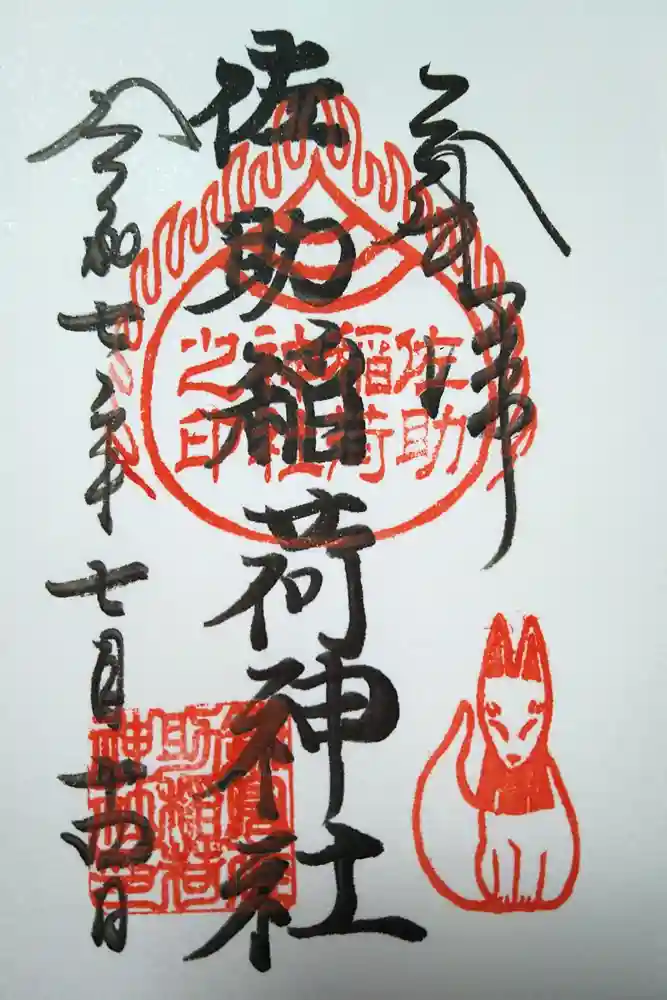 拝
佐助稲荷神社
令和七年七月十四日
佐助
稲荷
神社
之印
鎌倉佐
助稲荷
神社印